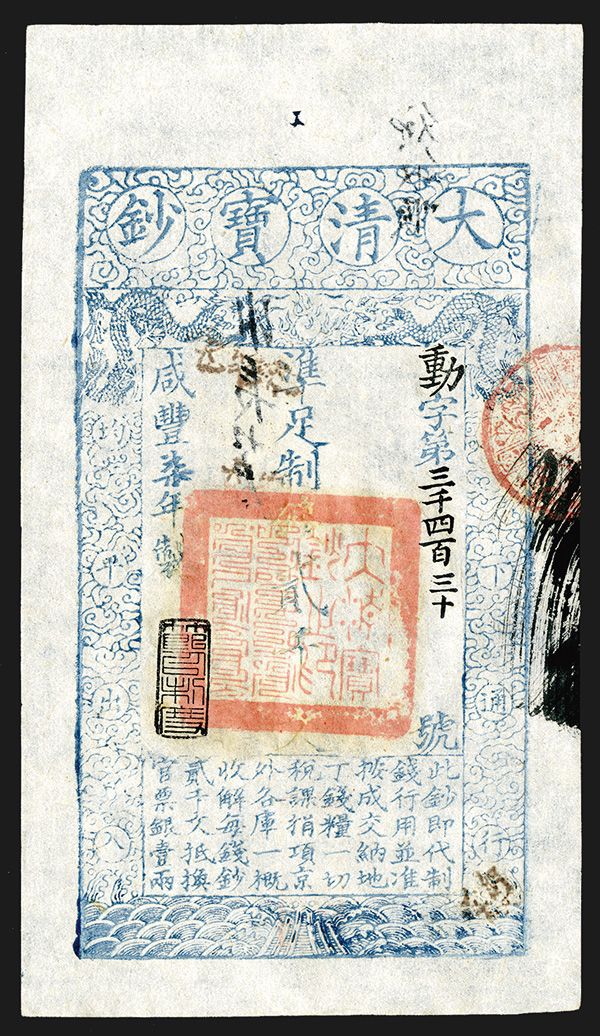 大清寶鈔
天下通行
均平出入
動字第三千四百三十號
準足制錢貳千文
咸豐柒年製
此鈔即代制
錢行用並準
按成交納地
丁錢糧一切
稅課捐項京
外各庫一概
收解每錢鈔
貳千文抵換
官票銀壹兩